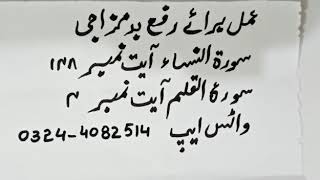 عمل برائے رفع بدمزاجی
سورۃ النساء آیت نمبر ۱۴۸
سورۃ القلم آیت نمبر ۴
واٹس ایپ 0324-4082514